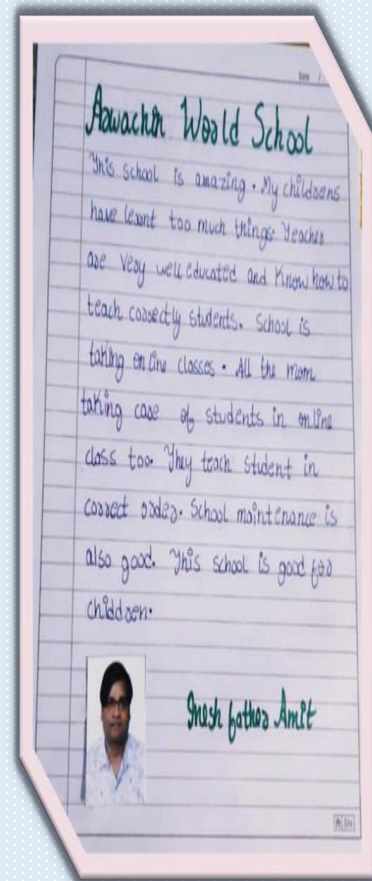 Date
Arwachin World School
This school is amazing. My childrens
have learnt too much things. Teacher
are very well educated and know how to
teach correctly students. School is
taking online classes. All the mam
taking care of students in online
class too. They teach student in
correct order. School maintenance is
also good. This school is good for
childdren.
Inesh father Amit